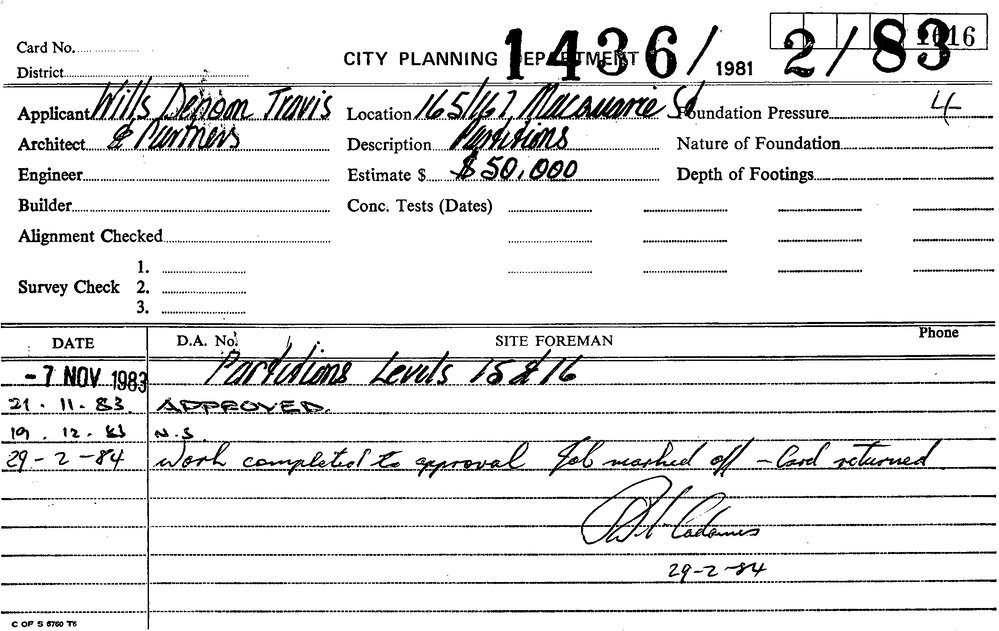 Card No.
CITY PLANNING DEPARTMENT
1436/ 1981 2/83
1616
District
Applicant Wills Denoon Travis
Location 165/167 Macquarie St
Foundation Pressure 4
Architect & Partners
Description Partitions
Nature of Foundation
Engineer
Estimate $ $50,000
Depth of Footings
Builder
Conc. Tests (Dates)
Alignment Checked
1.
Survey Check 2.
3.
DATE D.A. No. SITE FOREMAN Phone
-7 NOV 1983 Partitions Levels 15 & 16
21.11.83. APPROVED.
19.12.83 N.S.
29-2-84 Work completed to approval Job marked off - Card returned
29-2-84
C OF S 6760 T6